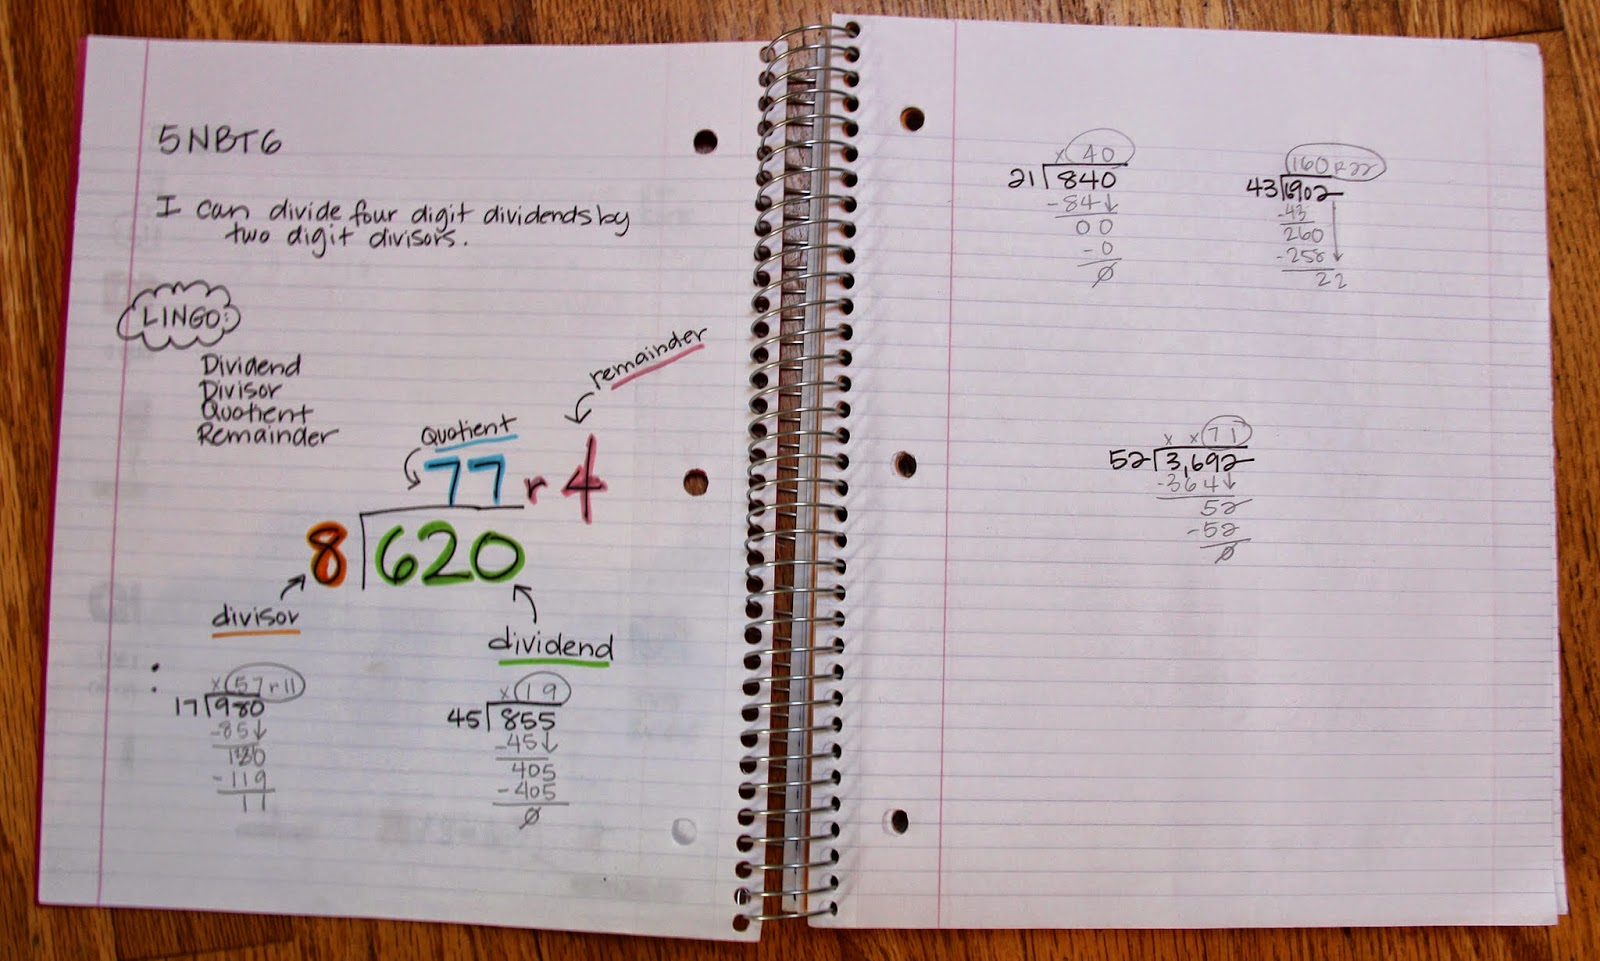 5NBT6
I can divide four digit dividends by
two digit divisors.
LINGO:
Dividend
Divisor
Quotient
Remainder
remainder
Quotient
77 r 4
8 620
divisor
dividend
x 57 r 11
17 980
-85↓
130
-119
11
x 19
45 855
-45↓
405
-405
0
x 40
21 840
-84↓
00
-0
0
160 R22
43 1902
-43
260
-258↓
22
x x 71
52 3,692
-364↓
52
-52
0